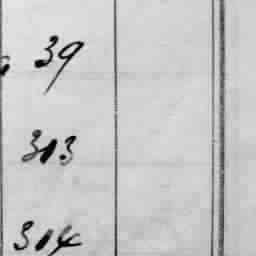 39
313
314